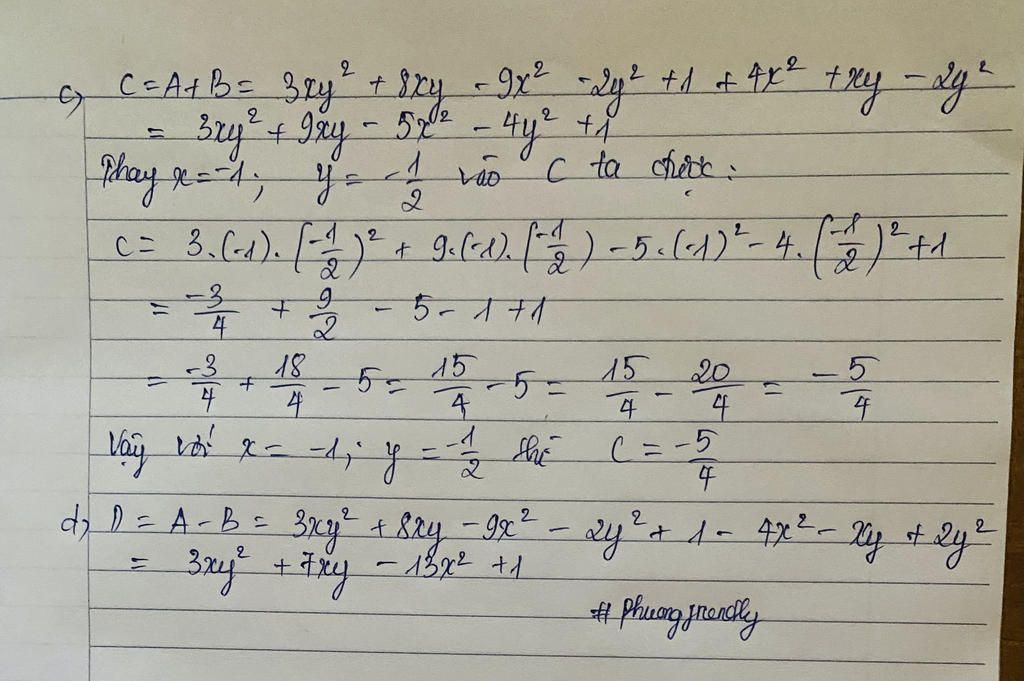 c) C = A + B = 3xy² + 8xy - 9x² - 2y² + 1 + 4x² + xy - 2y²
= 3xy² + 9xy - 5x² - 4y² + 1
Thay x = -1; y = -1/2 vào C ta được:
C = 3.(-1).(-1/2)² + 9.(-1).(-1/2) - 5.(-1)² - 4.(-1/2)² + 1
= -3/4 + 9/2 - 5 - 1 + 1
= -3/4 + 18/4 - 5 = 15/4 - 5 = 15/4 - 20/4 = -5/4
Vậy với x = -1; y = -1/2 thì C = -5/4
d) D = A - B = 3xy² + 8xy - 9x² - 2y² + 1 - 4x² - xy + 2y²
= 3xy² + 7xy - 13x² + 1
# Phuongfriendly